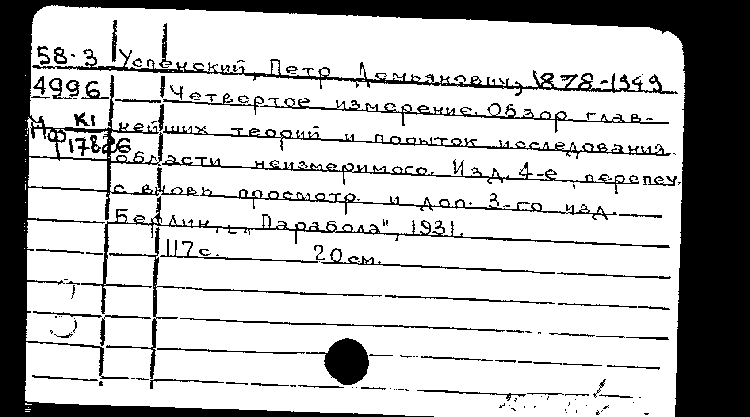 58-3 Успенский, Петр Демьянович, 1878-1949
4996 Четвертое измерение. Обзор глав-
Мф К1 нейших теорий и попыток исследования
17826 области неизмеримого. Изд. 4-е, перепеч.
с вновь просмотр. и доп. 3-го изд.
Берлин, "Парабола", 1931.
117 с. 20 см.